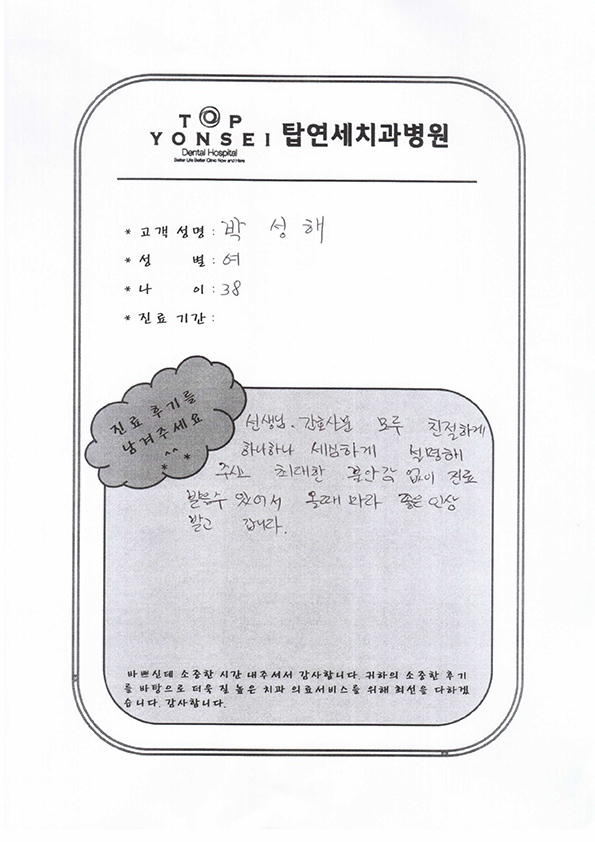 TOP
YONSEI 탑연세치과병원
Dental Hospital
Better Life Better Clinic Now and Here
* 고객 성명 : 박 성 해
* 성 별 : 여
* 나 이 : 38
* 진료 기간 :
진료 후기를
남겨주세요
^^
* *
선생님. 간호사분 모두 친절하게
하나하나 세밀하게 설명해
주시고 최대한 불안감 없이 진료
받을수 있어서 올때 마다 좋은 인상
받고 갑니다.
바쁘신데 소중한 시간 내주셔서 감사합니다. 귀하의 소중한 후기
를 바탕으로 더욱 질 높은 치과 의료서비스를 위해 최선을 다하겠
습니다. 감사합니다.